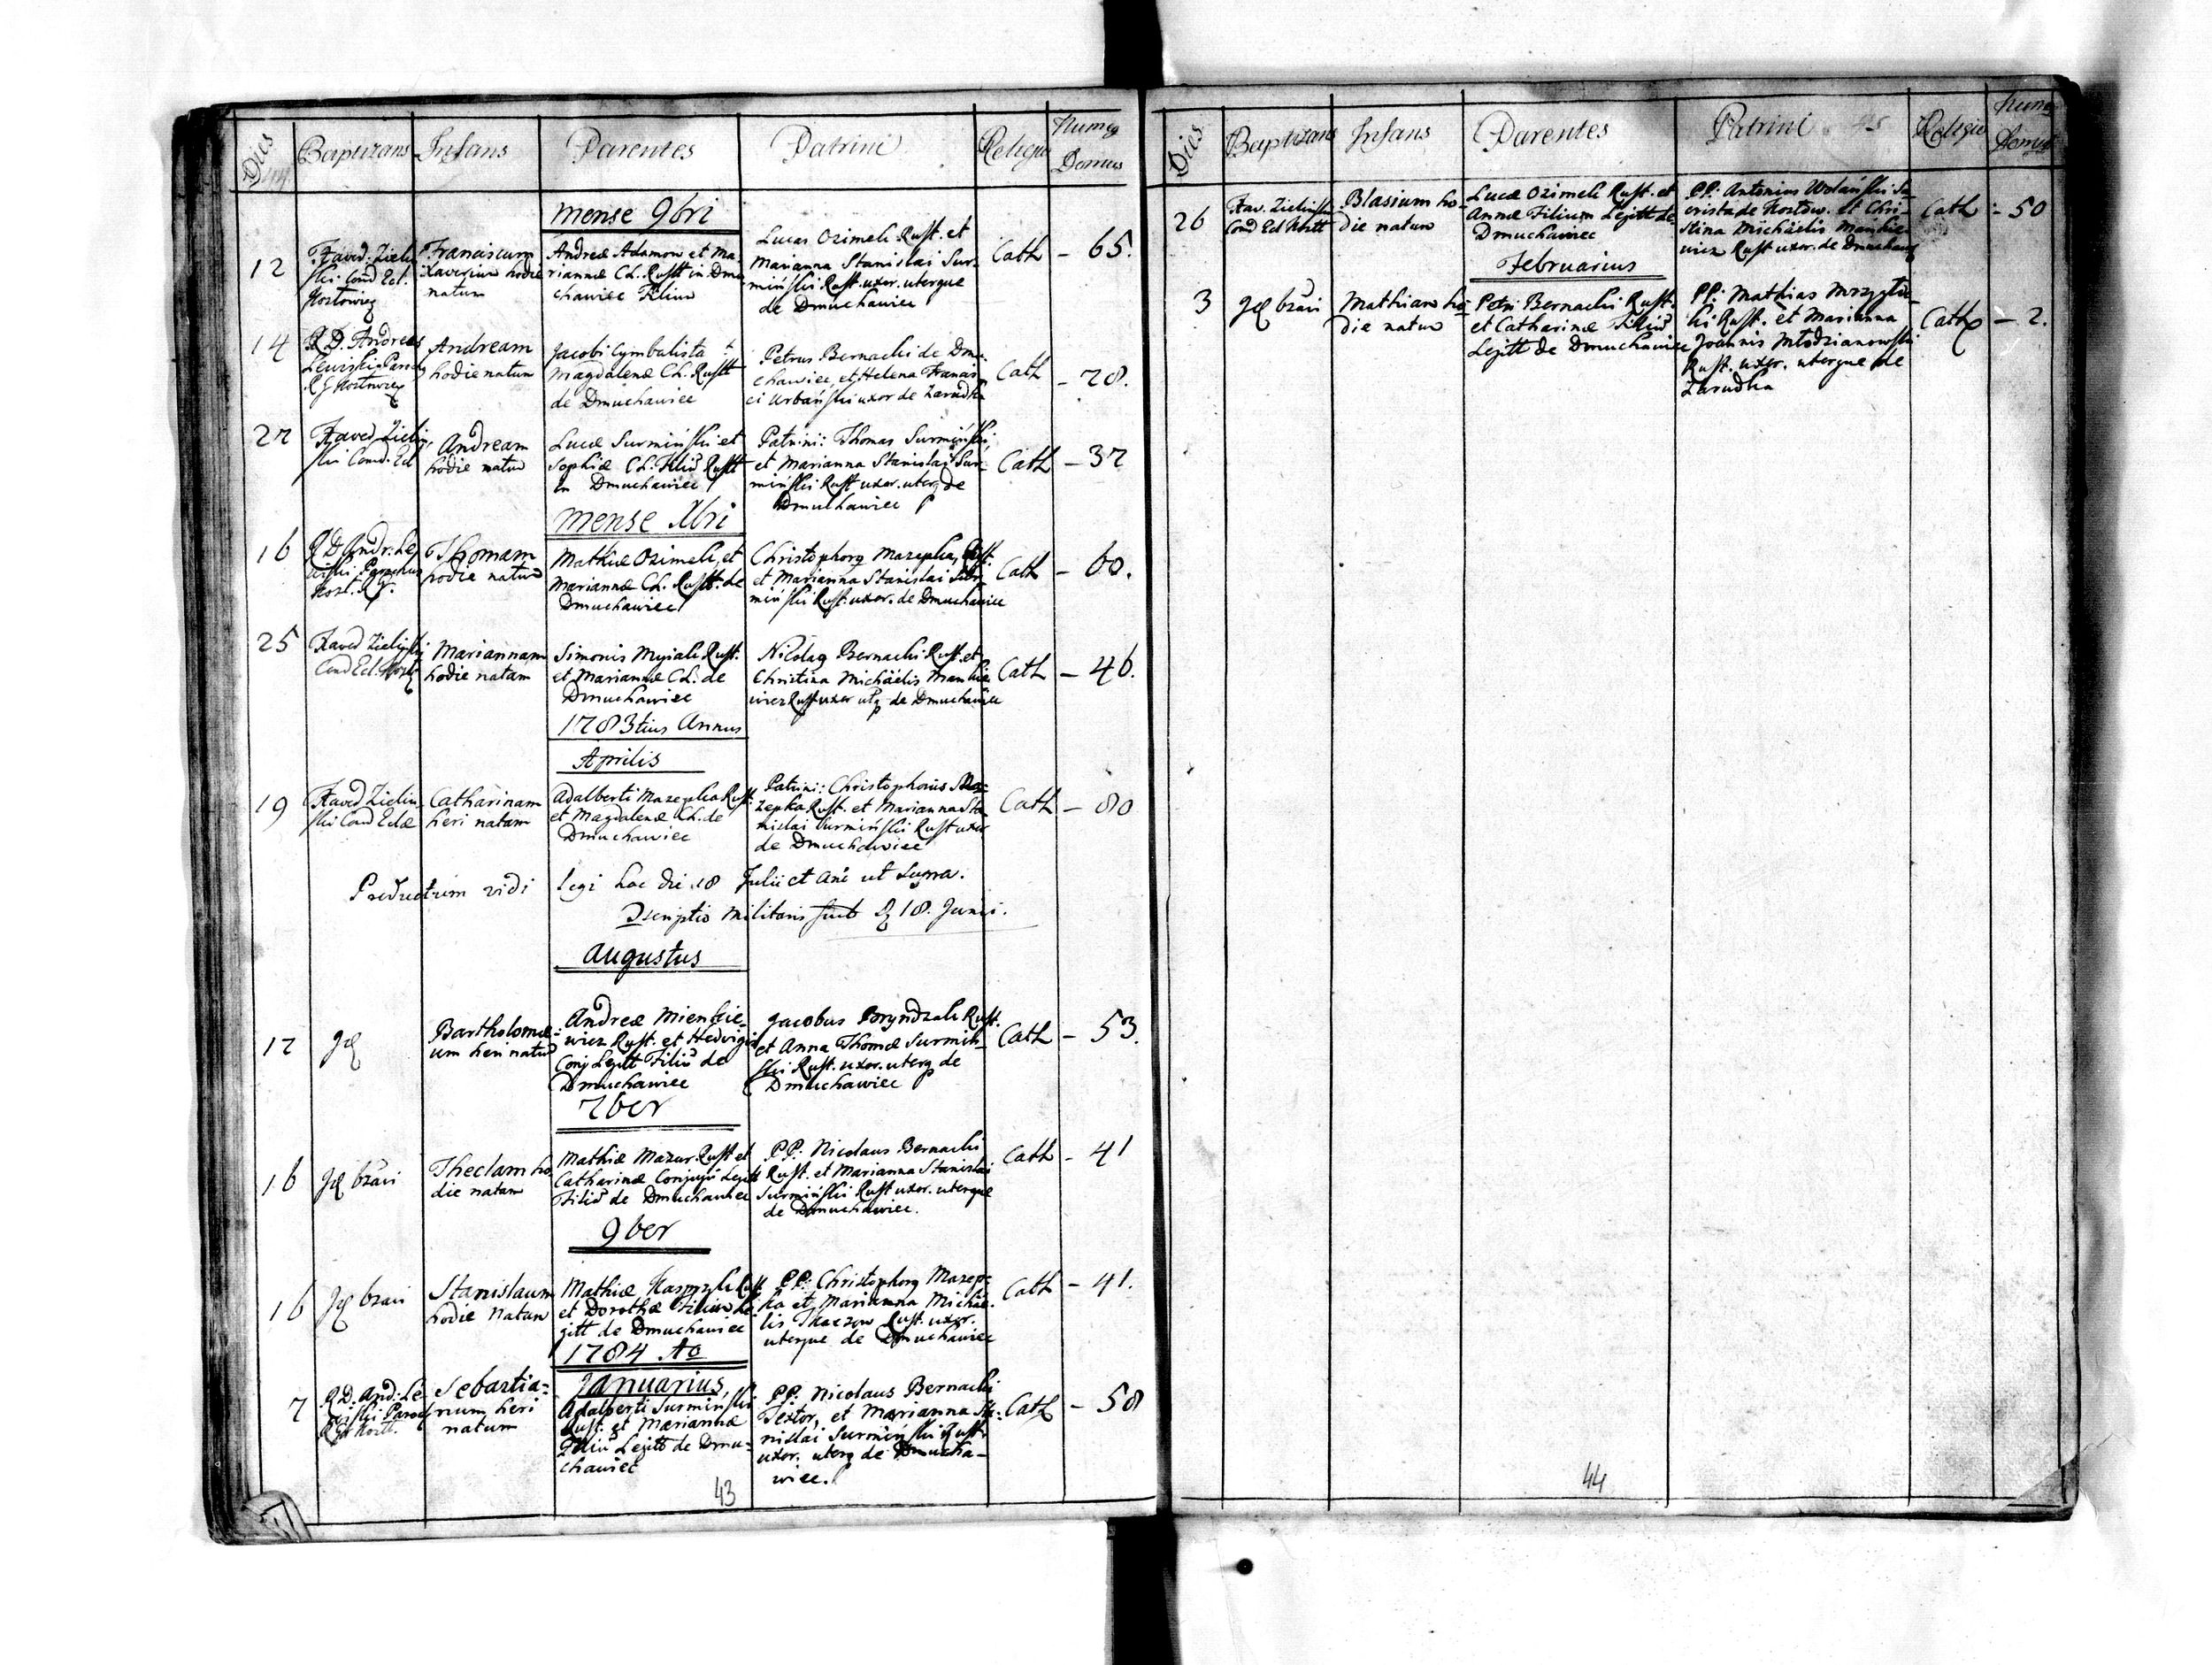 Dies
44
Baptizans
Infans
Parentes
Patrini
Religio
Numeq
Domus
Mense 9bri
12
Xaved: Zieliń
ski Cond Ecl.
Kozłowieq
Franciscum
Xaverium hodie
natum
Andreæ Adamow et Ma
riannæ CL. Rustt in Dmu
chawiec Filiū
Lucas Ozimek Rust. et
Marianna Stanislai Sur-
miński Rust. uxor. uterque
de Dmuchawiec
Cath - 65.
14
R. D. Andreas
Lewiski Paroch
Andream
hodie natum
Jacobi Cymbalista et
Magdalenæ CL. Rustt
de Dmuchawiec
Petrus Bernacki de Dmu-
chawiec, et Helena Francis
ci Urbański uxor de Zarudka
Cath - 28.
27
Xaved Zieliń
ski Cond. Ecl
Andream
hodie natū
Lucæ Surmiński et
Sophiæ CL. Filiū Rustt
in Dmuchawiec
Patrini: Thomas Surmiński
et Marianna Stanislai Sur-
miński Rust uxor. uterq de
Dmuchawiec
Cath - 37
Mense Xbri
16
R D Andr: Le
wiski Parochus
Thomam
hodie natū
Mathiæ Ozimek, et
Mariannæ CL. Rustt. de
Dmuchawiec
Christophorq Mazepka, Rust.
et Marianna Stanislai Sur-
miński Rust. uxor. de Dmuchawiec
Cath - 60.
25
Xaved Zieliński
Cond Ecl. Kozł
Mariannam
hodie natam
Simonis Mysiak Rust.
et Mariannæ CL. de
Dmuchawiec
Nicolaq Bernacki Rust. et
Christina Michäelis Mankie
wicz Rust uxor utq de Dmuchawiec
Cath - 46.
1783tius Annus
Aprilis
19
Xaved Zieliń
ski Cond Eclæ
Catharinam
heri natam
Adalberti Mazepka Rust.
et Magdalenæ CL. de
Dmuchawiec
Patrini: Christophorus Ma-
zepka Rust. et Marianna Sta
nislai Surmiński Rust uxor
de Dmuchawiec
Cath - 80
Productum vidi legi hac die 18 Julii et Añi ut Supra.
Dscriptio Militaris fuit D 18. Junii.
Augustus
17
Jd
Bartholomæ-
um heri natū
Andreæ Mienkie-
wicz Rust. et Hedvigis
Conj Legitt Filiū de
Dmuchawiec
Jacobus Bryndzak Rust.
et Anna Thomæ Surmiń-
ski Rust. uxor. uterq de
Dmuchawiec
Cath - 53.
7ber
16
Jd bzavi
Theclam ho
die natam
Mathiæ Mazur Rust et
Catharinæ Conjugū Legitt
Filiā de Dmuchawiec
PP. Nicolaus Bernacki
Rust. et Marianna Stanislai
Surmiński Rust uxor. uterque
de Dmuchawiec.
Cath - 41
9ber
16
Jd bzavi
Stanislaum
hodie Natum
Mathiæ Kasprzyk Rust
et Dorothæ Filium Le
gitt de Dmuchawiec
PP: Christophorq Mazep-
ka et Marianna Michäe-
lis Tkaczow Rust. uxor.
uterque de Dmuchawiec
Cath - 41.
1784 Ao
Januarius
7
R D. And: Le-
wiski Paroch
Sebastia-
num heri
natum
Adalberti Surmiński
Rust. et Mariannæ
Filiū Legitt de Dmu-
chawiec
PP. Nicolaus Bernacki
Textor, et Marianna Sta-
nislai Surmiński Rust.
uxor. uterq de Dmucha-
wiec.
Cath - 58
43
Dies
Baptizans
Infans
Parentes
Patrini
45
Religio
Numeq
Domus
26
Xav. Zieliński
Cond Ecl Kozłt
Blasium ho-
die natum
Lucæ Ozimek Rust. et
Annæ Filium Legitt de
Dmuchawiec
PP: Antonius Wolański Sa
crista de Kozłow. et Chri-
stina Michäelis Mankie
wicz Rust uxor. de Dmuchawq
Cath - 50
Februarius
3
Jd bzavi
Mathiam ho-
die natum
Petri Bernacki Rust.
et Catharinæ Filiū
Legitt de Dmuchawiec
PP: Mathias Mrzygło-
ki Rust. et Marianna
Joannis Młodzianowski
Rust. uxor. uterque de
Zarudka
Cath - 2.
44